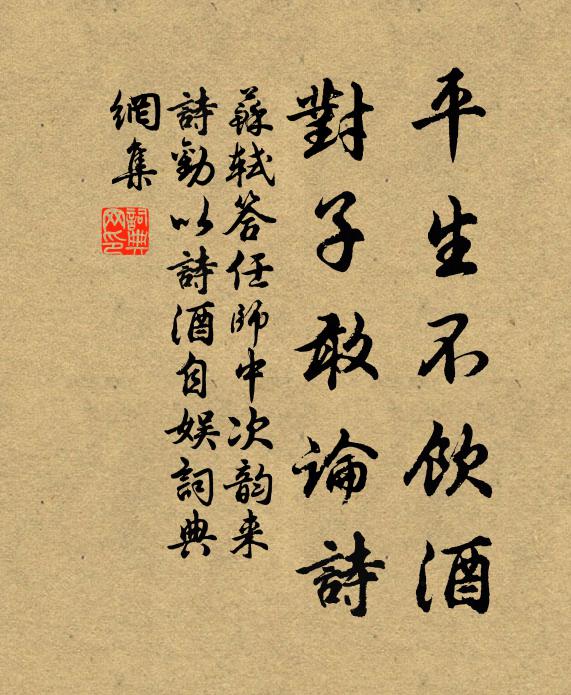 平生不飲酒
對子敢論詩
蘇軾答任師中次韵来
詩勸以詩酒自娱詞典
網集
詞典
网印